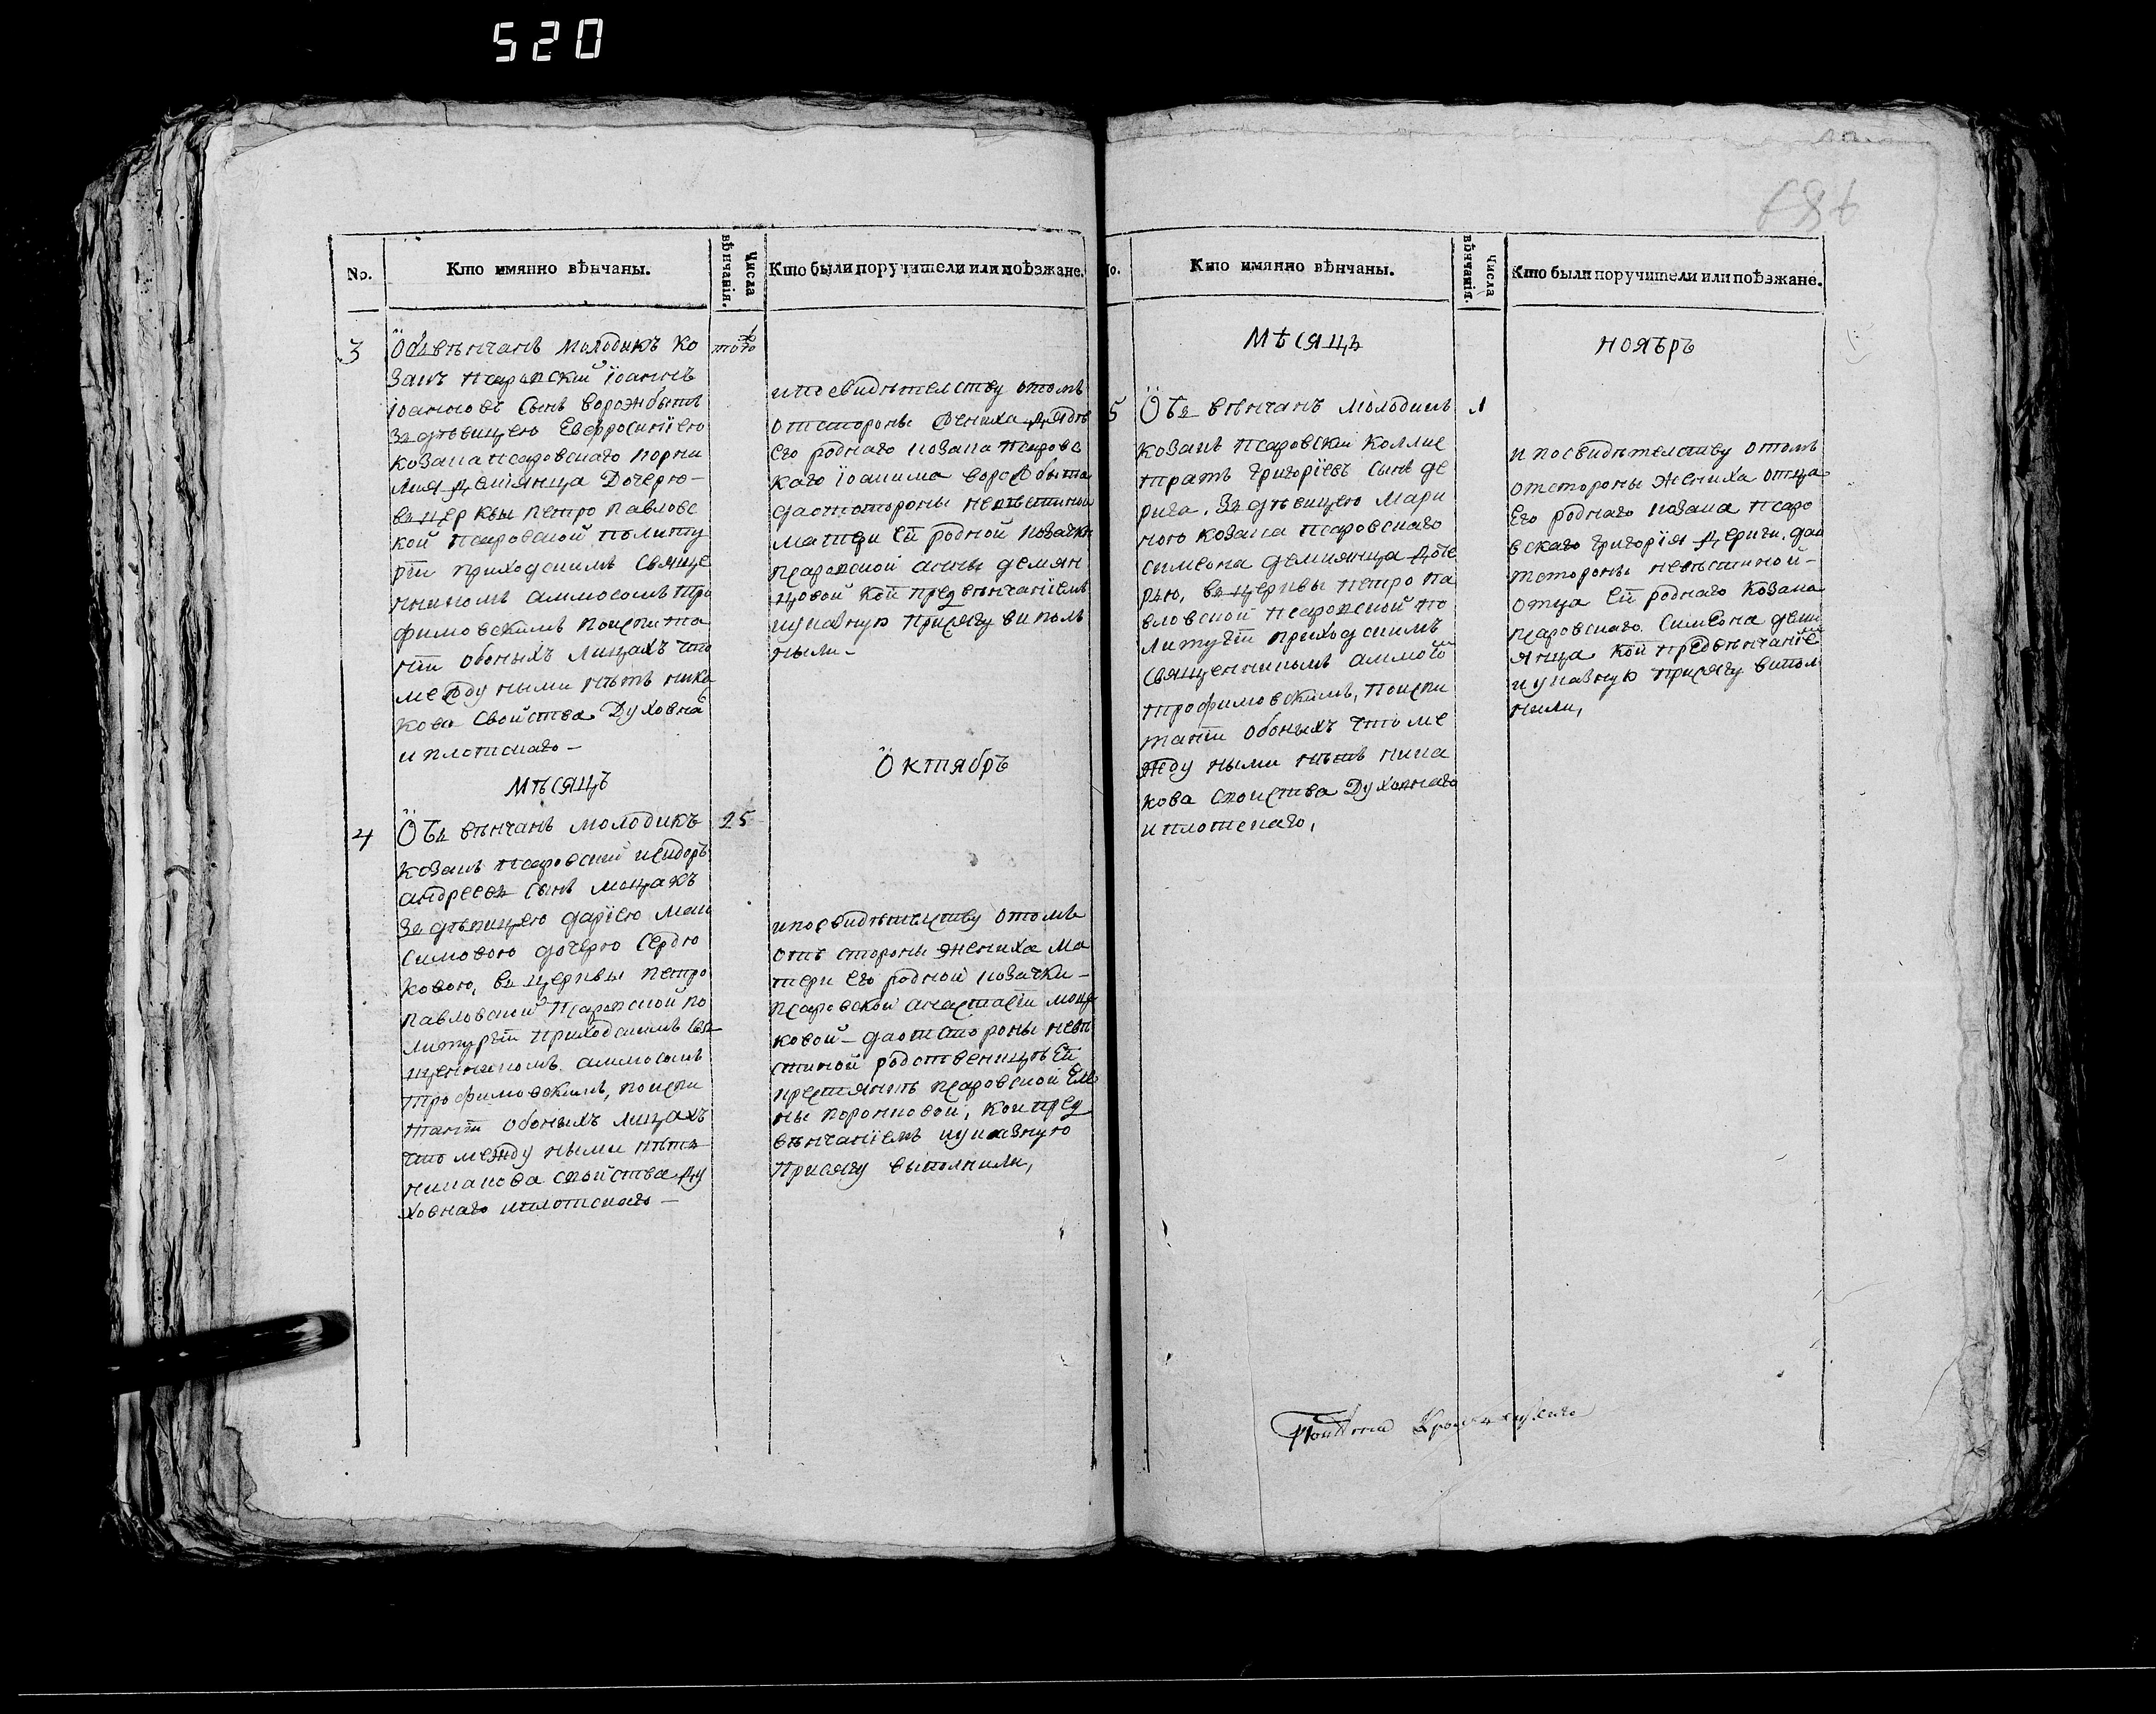 520
No.
Кто имянно вѣнчаны.
Числа вѣнчанія.
Кто были поручители или поѣзжане.
3
Обвѣнчанъ молодикъ ко
того
закъ псаровскїй Іоаннъ
Іоанновъ сынъ ворожбытъ
за дѣвицею Евфросинїею
козака псаровскаго корни
лия демїянца дочерю -
въ церквы петро павловс
кой псаровской по литу
ргїи приходскимъ свяще
нникомъ аммосомъ тро
фимовскимъ по испита
нїи обоныхъ лицахъ что
между ными нѣтъ ника
кова свойства духовна
и плотскаго -
и по свидѣтелству отомъ
от стороны жениха дядѣ
его роднаго козака псаровс
каго Іоакима ворожбыта
да от стороны невѣстиной
матери ей родной козачки
псаровской анны демян
цовой кои пред вѣнчанїемъ
и указную присягу виполь
ныли -
мѣсяцъ
Октябрь
4
Объвѣнчанъ молодикъ
25
козакъ псаровскїй исидоръ
андреевъ сынъ мацакъ
за дѣвицею дарїею мак
симовою дочерю сердю
ковою, въ церквы петро
павловской псаровской по
литургїи приходскимъ свя
щенникомъ аммосомъ
трофимовскимъ, по испи
танїи обоныхъ лицахъ
что между ными нѣтъ
никакова свойства ду
ховнаго и плотскаго -
и по свидѣтелству отомъ
отъ стороны жениха ма
тери его родной козачки -
псаровской анастасїи маца
ковой - да от стороны невѣ
стиной родственицѣ ей
крестянкѣ псаровской Еле
ны коронковой, кои пред
вѣнчанїемъ и указную
присягу выполнили,
No.
Кто имянно вѣнчаны.
Числа вѣнчанія.
Кто были поручители или поѣзжане.
мѣсяцъ
ноябрь
5
Объ вѣнчанъ молодикъ
1
козакъ псаровскїй каллис
тратъ григорїевъ сынъ де
рига, за дѣвицею мари
ною козака псаровскаго
симеона демиянца доче
рью, въ церквы петро па
вловской псаровской по
литургїи приходскимъ
священникомъ аммосо
трофимовскимъ, по испи
танїи обоныхъ что ме
жду ными нѣтъ ника
кова свойства духовнаго
и плотскаго,
и по свидѣтелству отомъ
от стороны жениха отца
его роднаго козака псаро
вскаго григорїя дериги, да о
тстороны невѣстиной -
отца ей роднаго козака
псаровскаго симеона деми
янца кои предвѣнчанїе
и указную присягу випол
нили,